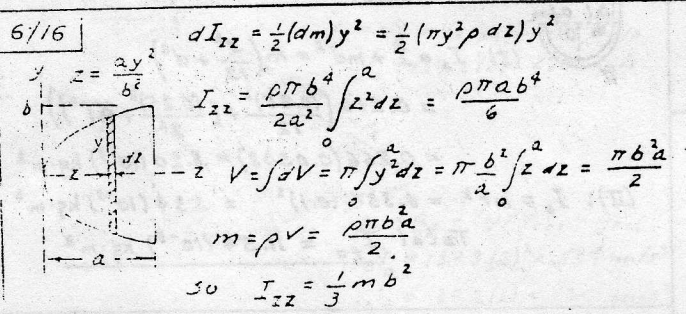 6/16
dI_zz = 1/2 (dm) y² = 1/2 (πy²ρ dz) y²
y
z = ay²/b²
b
I_zz = ρπb⁴/2a² ∫₀ᵃ z²dz = ρπab⁴/6
y
z
dz
z
V = ∫dV = π∫₀ᵃ y²dz = π b²/a ∫₀ᵃ z dz = πb²a/2
m = ρV = ρπb²a/2.
a
so I_zz = 1/3 mb²